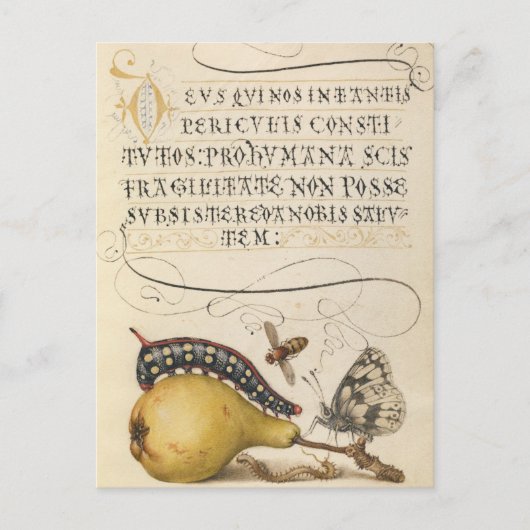 DEVS QVI NOS IN TANTIS
PERICVLIS CONSTI
TVTOS: PRO HVMANA SCIS
FRAGILITATE NON POSSE
SVBSISTERE DA NOBIS SALV-
TEM: